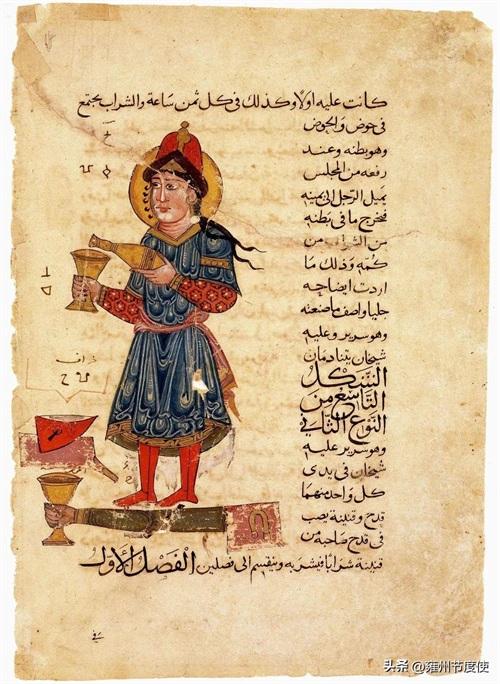 كانت عليه اولًا وكذلك فى كل ثمن ساعة والشراب يجتمع
فى حوض والحوض
وهو بطنه وعند
رفعه من المجلس
يميل الرجل الى يمينه
فيخرج ما فى بطنه
من الشراب من
كمّه وذلك ما
اردت ايضاحه
جليا واصف ما صنعته
وهو سرير وعليه
شيخان يتنادمان
الشكل
التاسع من
النوع الثانى
وهو سرير عليه
شيخان فى يدى
كل واحد منهما
قدح وقنينة يصب
فى قدح صاحبه من
قنينة شرابًا فيشربه وينقسم الى فصلين الفصل الاول
头条 @雍州节度使